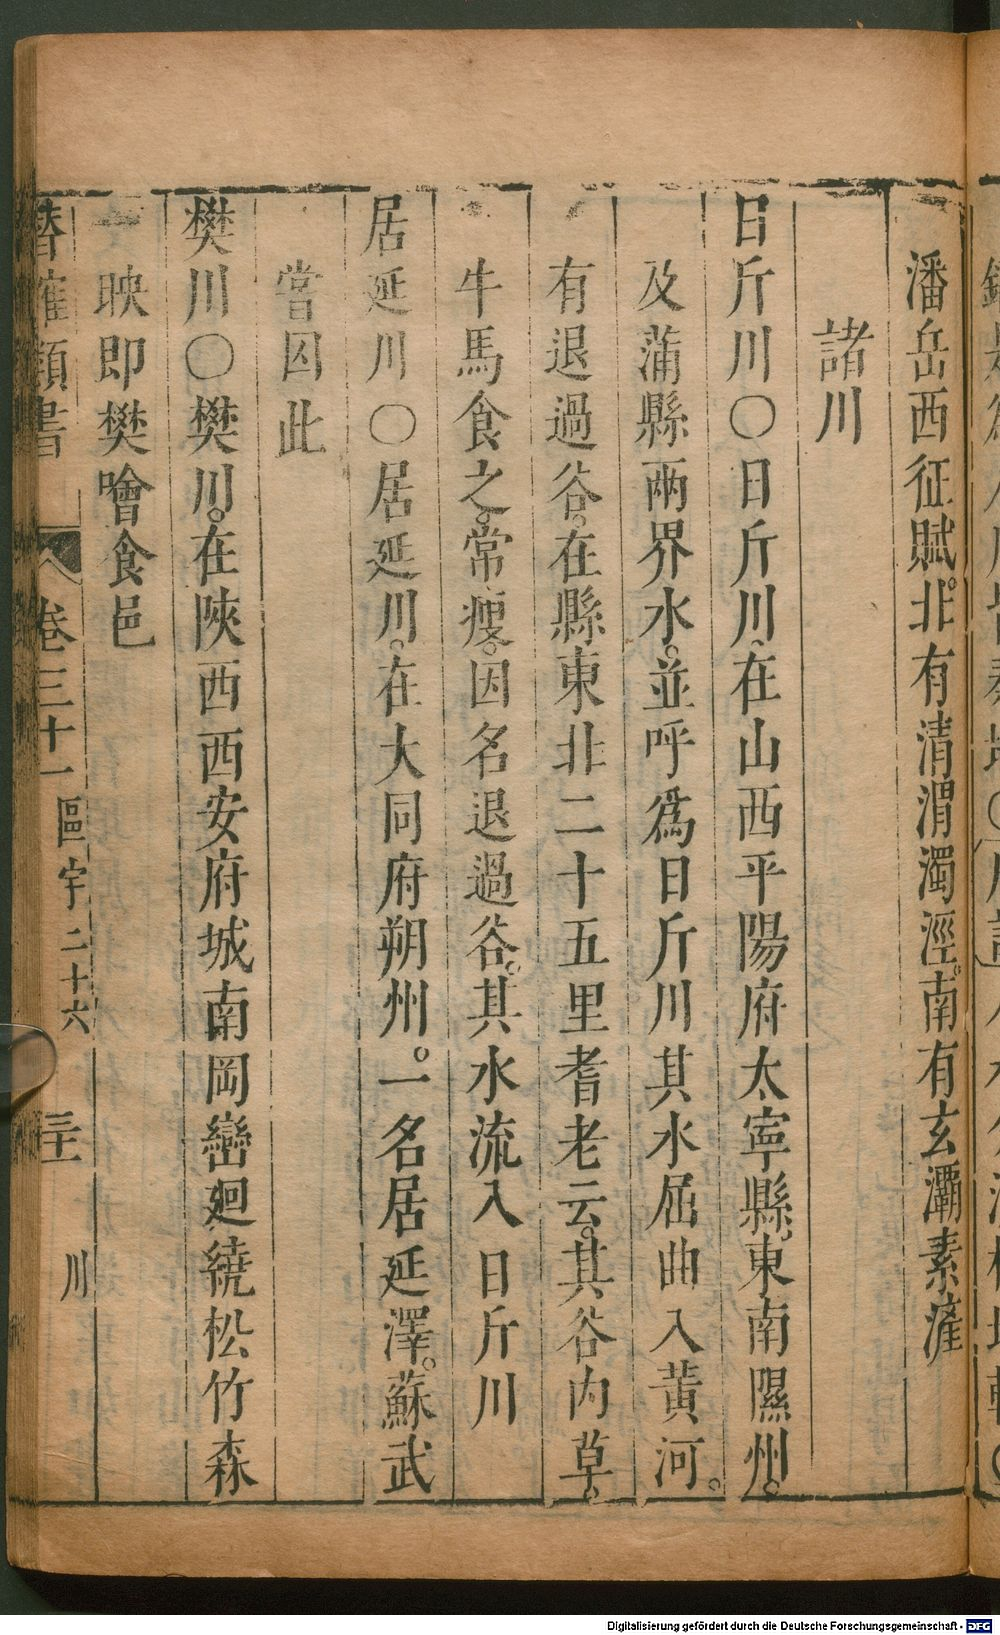 潘岳西征賦。北有清渭濁涇。南有玄灞素滻
諸川
日斤川○日斤川。在山西平陽府太寧縣。東南隰州。
及蒲縣兩界水。並呼爲日斤川其水屈曲入黃河。
有退過谷。在縣東北二十五里耆老云。其谷內草。
牛馬食之。常瘦。因名退過谷。其水流入日斤川
居延川○居延川。在大同府朔州。一名居延澤。蘇武
當因此
樊川○樊川。在陝西西安府城南岡巒廻繞松竹森
映即樊噲食邑
潛確類書 卷三十一 區宇二十六 三十 川
Digitalisierung gefördert durch die Deutsche Forschungsgemeinschaft - DFG